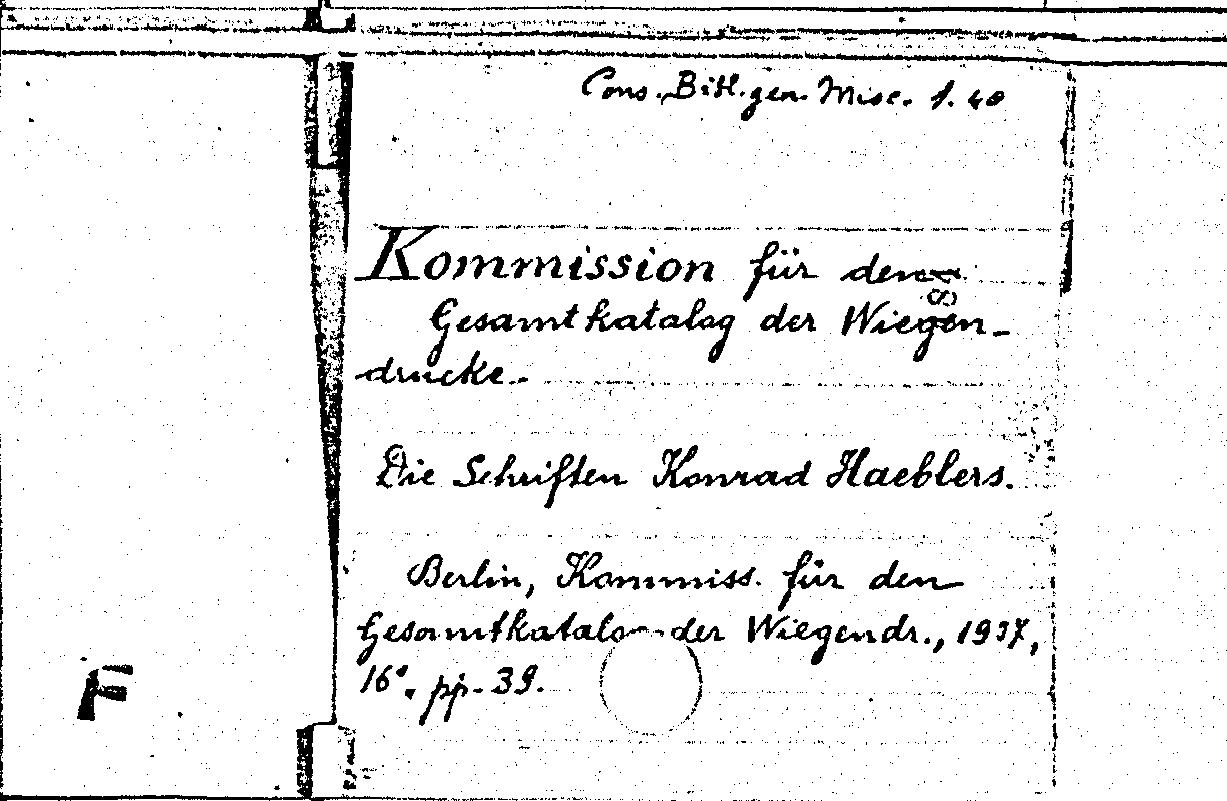 Cons. Bibl. gen. Misc. 1. 40
Kommission für den
Gesamtkatalog der Wiegen-
drucke.
Die Schriften Konrad Haeblers.
Berlin, Kommiss. für den
Gesamtkatalog der Wiegendr., 1937,
16°. pp. 39.
F